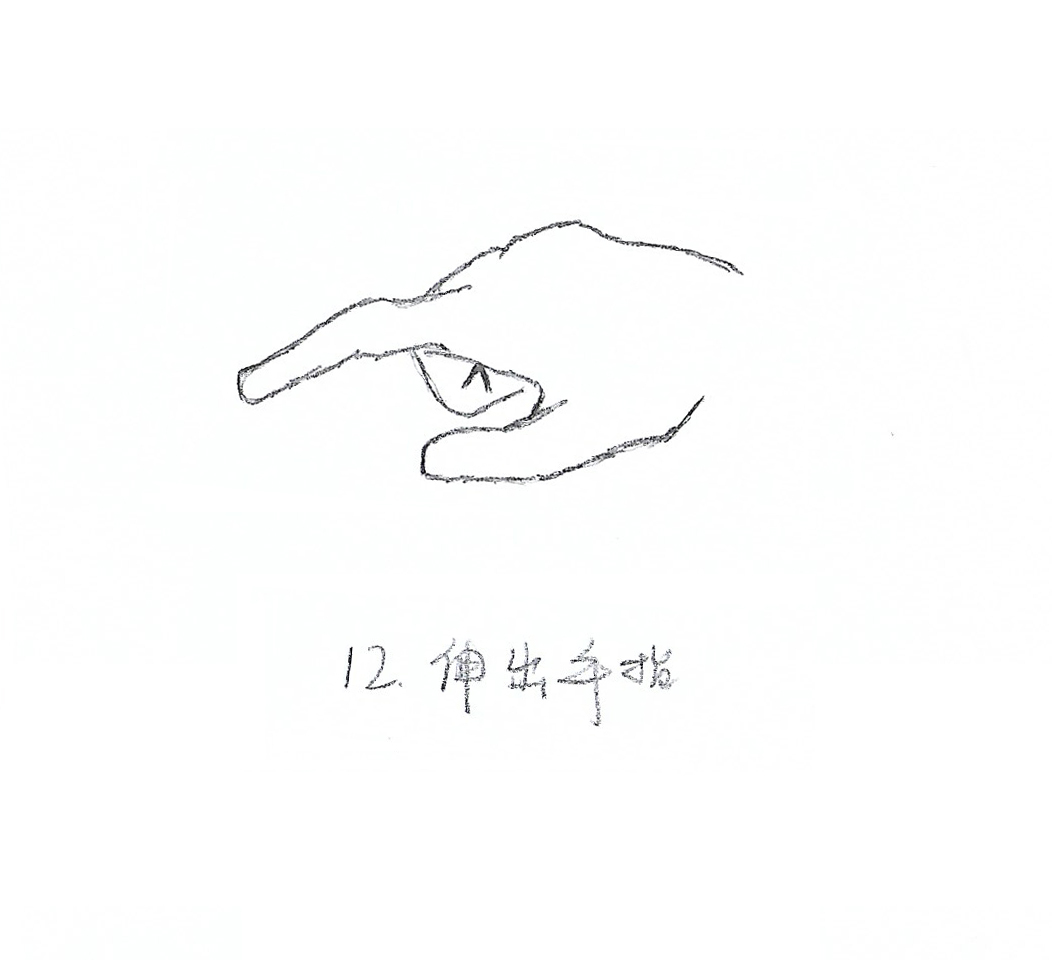 12. 伸出手指